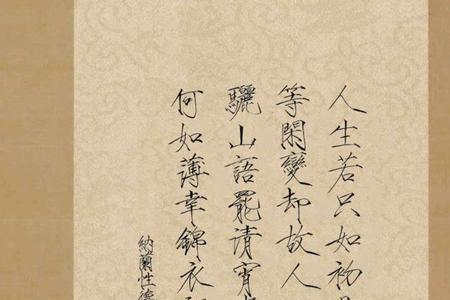 人生若只如初
等閑變却故人
驪山語罷清宵
何如薄幸錦衣
納蘭性德